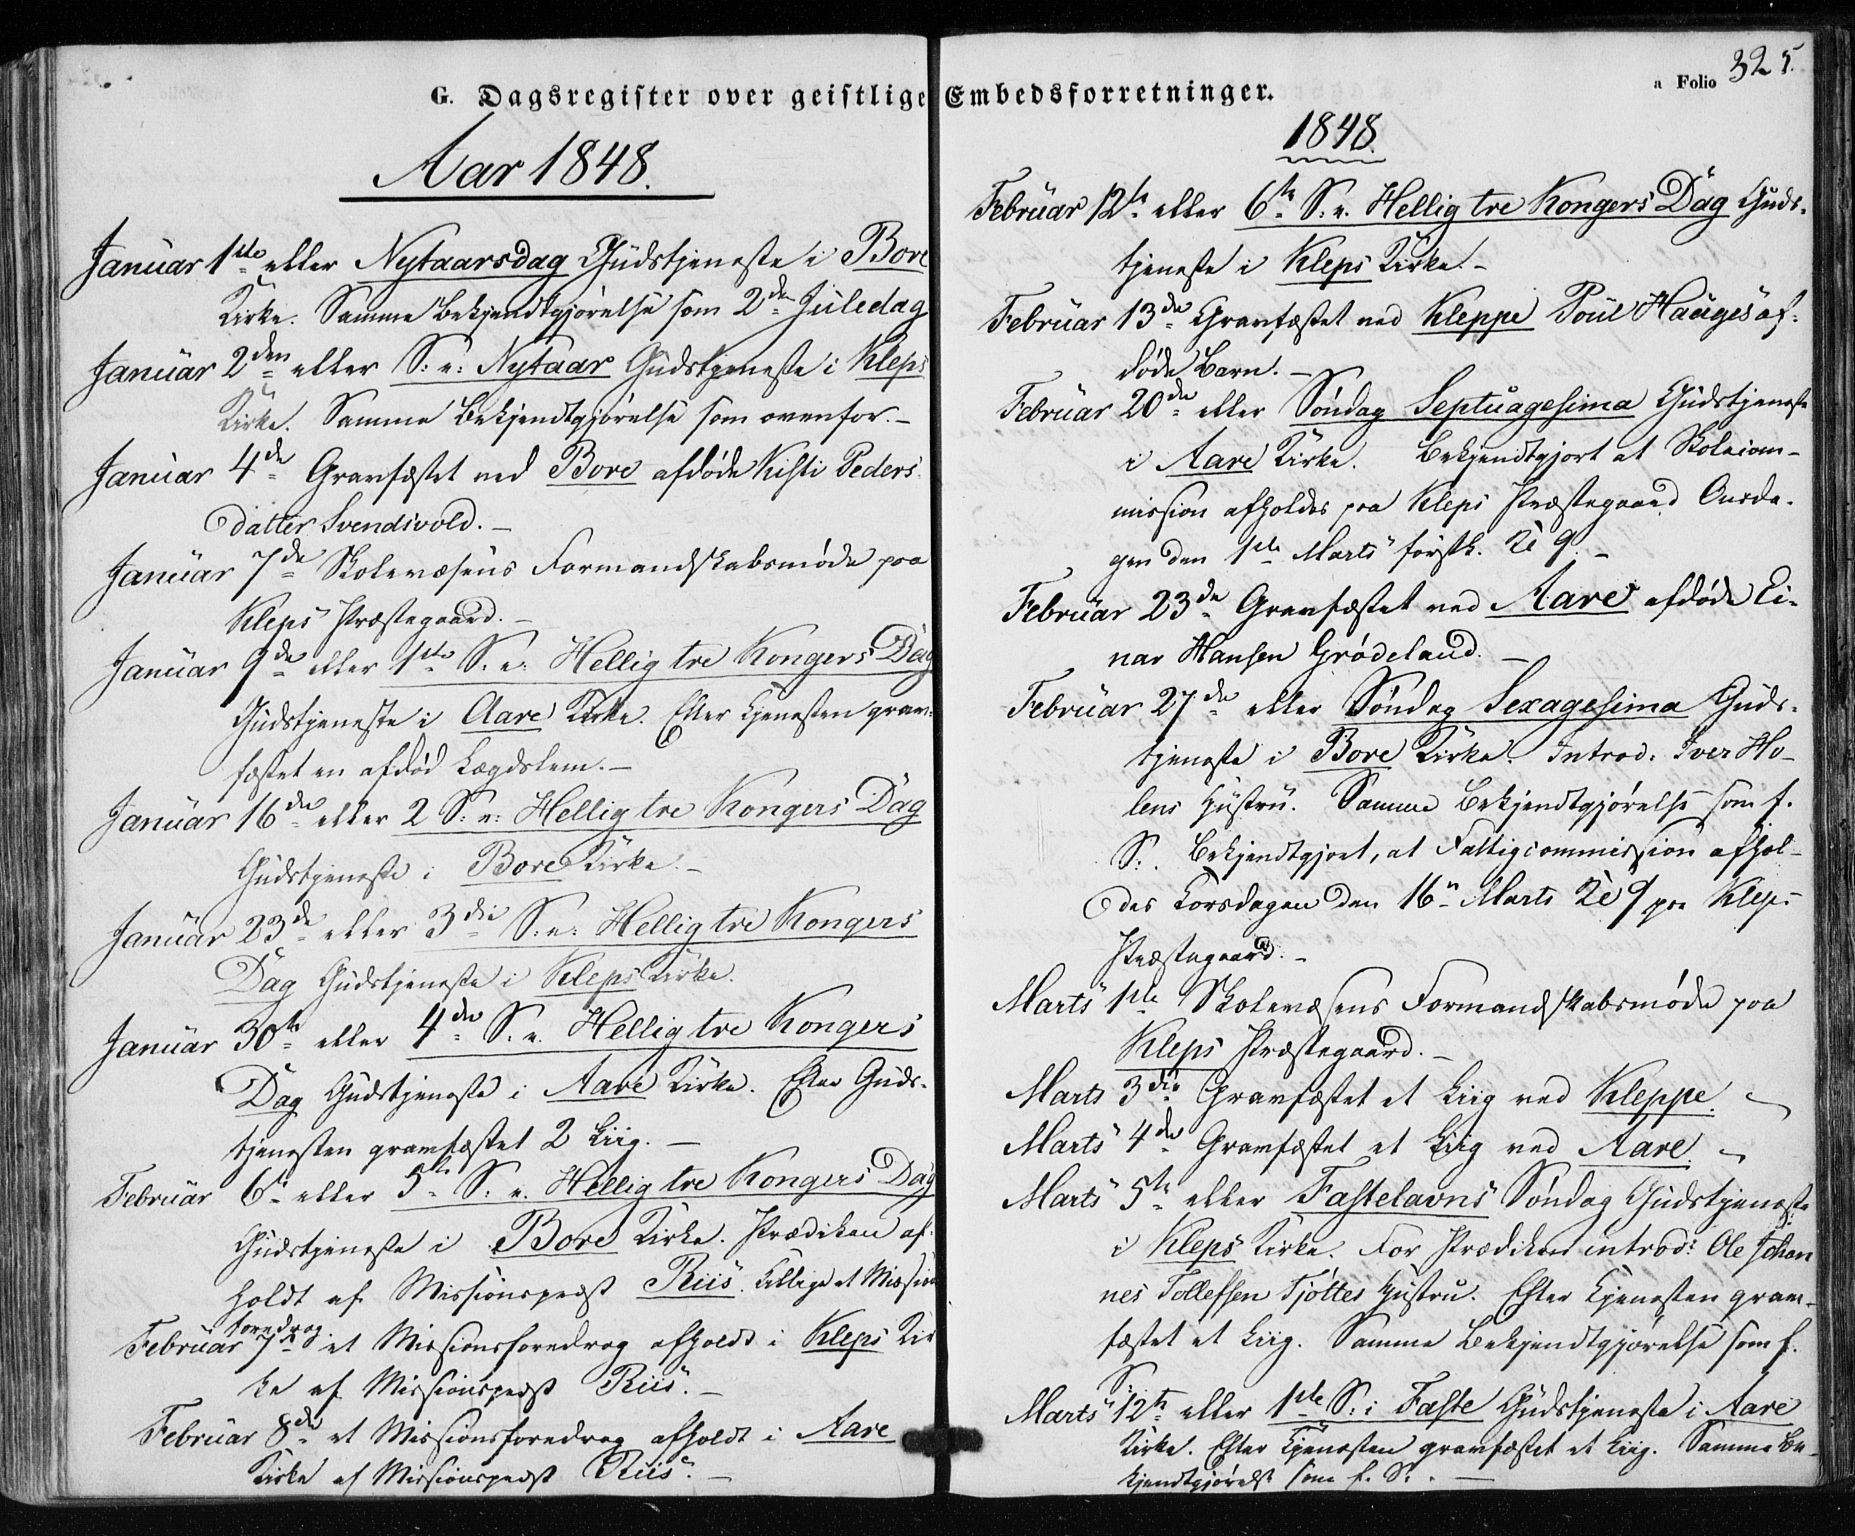 G. Dagsregister over geistlige
Aar 1848.
Januar 1ste eller Nytaarsdag Gudstjeneste i Bore
Kirke. Samme Bekjendtgjørelse som 2den Juledag
Januar 2den eller S: e: Nytaar Gudstjeneste i Kleps
Kirke. Samme Bekjendtgjørelse som ovenfor. –
Januar 4de Gravfæstet ved Bore afdøde Kisti Peders
datter Svendsvold. –
Januar 7de Skolevæsens Formandskabsmøde paa
Kleps Præstegaard. –
Januar 9de eller 1ste S. e: Hellig tre Kongers Dag
Gudstjeneste i Aare Kirke. Efter Tjenesten grav-
fæstet en afdød Lægdslem. –
Januar 16de eller 2 S: e: Hellig tre Kongers Dag
Gudstjeneste i Bore Kirke. –
Januar 23de eller 3die S: e: Hellig tre Kongers
Dag Gudstjeneste i Kleps Kirke.
Januar 30te eller 4de S. e. Hellig tre Kongers
Dag Gudstjeneste i Aare Kirke. Efter Guds-
tjenesten gravfæstet 2 Liig. –
Februar 6te eller 5te S: e. Hellig tre Kongers Dag
Gudstjeneste i Bore Kirke. Prædiken af-
holdt af Missionspræst Riis. Tillige et Missions
foredrag
Februar 7de et Missionsforedrag afholdt i Kleps Kir
ke af Missionspræst Riis. –
Februar 8de et Missionsforedrag afholdt i Aare
Kirke af Missionspræst Riis. –
Embedsforretninger.
a Folio 325.
1848.
Februar 12te eller 6te S: e. Hellig tre Kongers Dag Guds-
tjeneste i Kleps Kirke. –
Februar 13de Gravfæstet ved Kleppe Poul Hauges af-
døde Barn. –
Februar 20de eller Søndag Septuagesima Gudstjeneste
i Aare Kirke. Bekjendtgjort at Skolecom-
mission afholdes paa Kleps Præstegaard Onsda-
gen den 1ste Marts førstk. Kl 9. –
Februar 23de Gravfæstet ved Aare afdøde Ei-
nar Hansen Grødeland. –
Februar 27de eller Søndag Sexagesima Guds-
tjeneste i Bore Kirke. Introd. Iver Ho-
lens Hustru. Samme Bekjendtgjørelse som f.
S. Bekjendtgjort, at Fattigcommission afhol-
des Torsdagen den 16de Marts Kl 9 paa Kleps
Præstegaard. –
Marts 1ste Skolevæsens Formandskabsmøde paa
Kleps Præstegaard. –
Marts 3die Gravfæstet et Liig ved Kleppe.
Marts 4de Gravfæstet et Liig ved Aare.
Marts 5te eller Fastelavns Søndag Gudstjeneste
i Kleps Kirke. Før Prædiken introd: Ole Johan
nes Tollefsen Tjøttes Hustru. Efter Tjenesten grav-
fæstet et Liig. Samme Bekjendtgjørelse som f.
S.
Marts 12te eller 1ste S: i Faste Gudstjeneste i Aare
Kirke. Efter Tjenesten gravfæstet et Liig. Samme Be-
kjendtgjørelse som f. S: . –